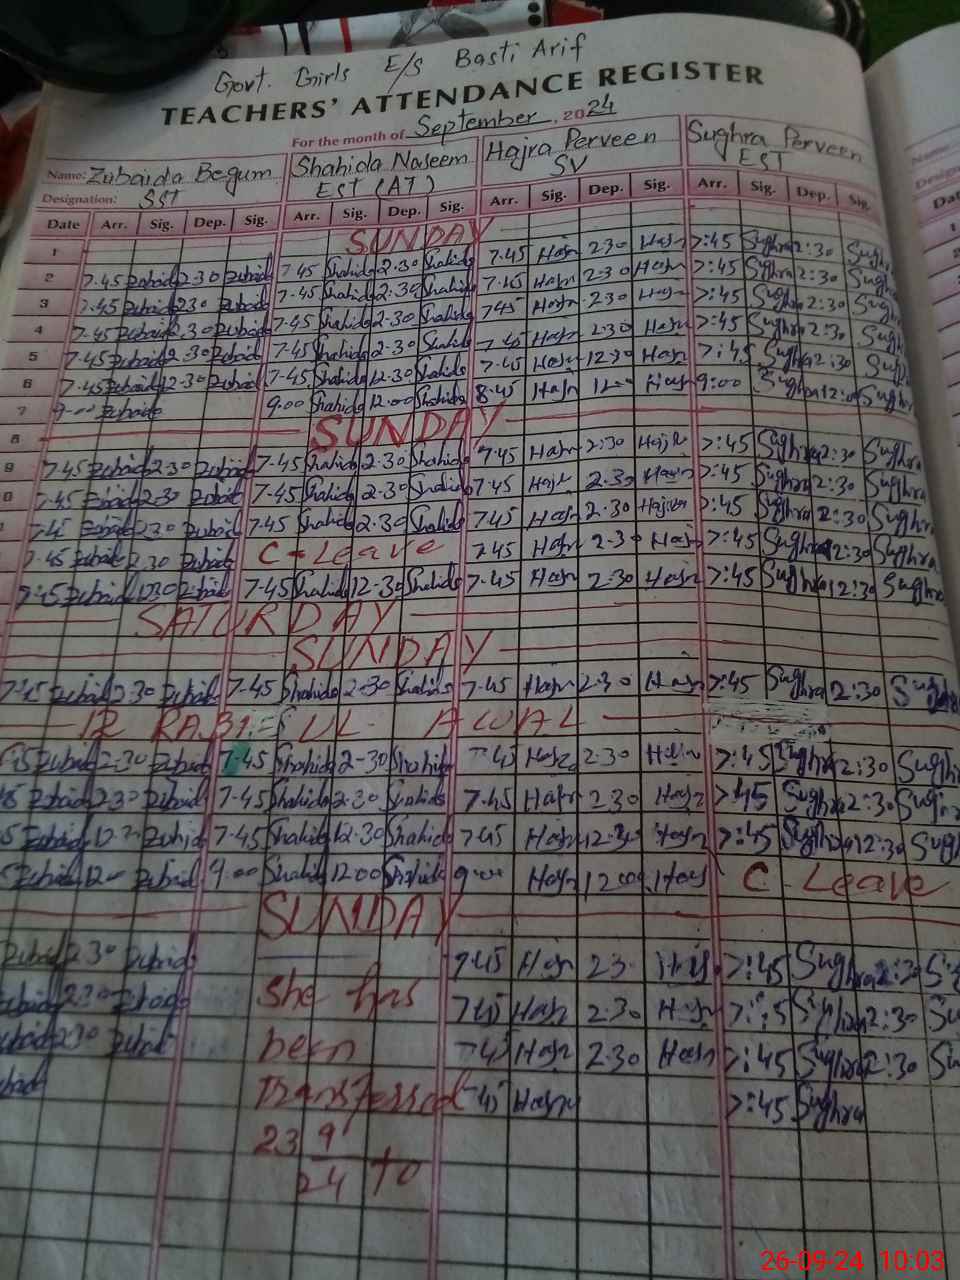 Govt. Girls E/S Basti Arif
TEACHERS' ATTENDANCE REGISTER
For the month of September, 2024
Name: Zubaida Begum Shahida Naseem Hajra Perveen Sughra Perveen
Designation: SST EST (AT) SV EST
Date Arr. Sig. Dep. Sig. Arr. Sig. Dep. Sig. Arr. Sig. Dep. Sig. Arr. Sig. Dep. Sig.
1 SUNDAY
2 7-45 Zubaid 2-30 Zubaid 7-45 Shahida 2-30 Shahida 7-45 Hajr 2-30 Hajr 7:45 Sughra 2:30 Sughra
3 7-45 Zubaid 2-30 Zubaid 7-45 Shahida 2-30 Shahida 7-45 Hajr 2-30 Hajr 7:45 Sughra 2:30 Sughra
4 7-45 Zubaid 2-30 Zubaid 7-45 Shahida 2-30 Shahida 7-45 Hajr 2-30 Hajr 7:45 Sughra 2:30 Sughra
5 7-45 Zubaid 2-30 Zubaid 7-45 Shahida 2-30 Shahida 7-45 Hajr 2-30 Hajr 7:45 Sughra 2:30 Sughra
6 7-45 Zubaid 12-30 Zubaid 7-45 Shahida 12-30 Shahida 7-45 Hajr 12-30 Hajr 7:45 Sughra 12:30 Sughra
7 9-00 Zubaida 9-00 Shahida 12-00 Shahida 8-45 Hajr Hajr 9:00 Sughra 12:00 Sughra
8 SUNDAY
9 7-45 Zubaid 2-30 Zubaid 7-45 Shahida 2-30 Shahida 7-45 Hajr 2-30 Hajr 7:45 Sughra 2:30 Sughra
7-45 Zubaid 2-30 Zubaid 7-45 Shahida 2-30 Shahida 7-45 Hajr 2-30 Hajr 7:45 Sughra 2:30 Sughra
7-45 Zubaid 2-30 Zubaid 7-45 Shahida 2-30 Shahida 7-45 Hajr 2-30 Hajra 7:45 Sughra 2:30 Sughra
7-45 Zubaid 2-30 Zubaid C-Leave 7-45 Hajr 2-30 Hajr 7:45 Sughra 2:30 Sughra
7-45 Zubaid 12-30 Zubaid 7-45 Shahida 12-30 Shahida 7-45 Hajr 2-30 Hajr 7:45 Sughra 12:30 Sughra
SATURDAY
SUNDAY
7-45 Zubaid 2-30 Zubaid 7-45 Shahida 2-30 Shahida 7-45 Hajr 2-30 Hajr 7:45 Sughra 2:30 Sughra
12 RABI-E-UL-AWAL
Zubaid 2-30 Zubaid 7-45 Shahida 2-30 Shahida 7-45 Hajr 2-30 Hajr 7:45 Sughra 2:30 Sughra
Zubaid 2-30 Zubaid 7-45 Shahida 2-30 Shahida 7-45 Hajr 2-30 Hajr 7:45 Sughra 2:30 Sughra
Zubaid Zubaid 7-45 Shahida 12-30 Shahida 7-45 Hajr 12-30 Hajr 7:45 Sughra 12:30 Sugh
Zubaid Zubaid 9-00 Shahid 12-00 Shahida 9-00 Hajr 12-00 Hajr C-Leave
SUNDAY
Zubaid 2-30 Zubaid 7-45 Hajr Hajr 7:45 Sughra 2:30
She has
Zubaid 2-30 Zubaid 7-45 Hajr 2-30 Hajr 7:45 Sughra 2:30
been
Zubaid 2-30 Zubaid 7-45 Hajr 2-30 Hajr 7:45 Sughra 2:30
Transfered 7-45 Hajr 7:45 Sughra
23 9
24 to
26-09-24 10:03